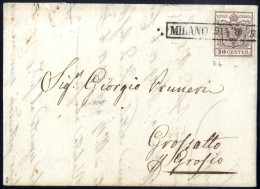 MILANO
30 CENTES.
Sig.r Giorgio Venneri
Grossotto
Grosio